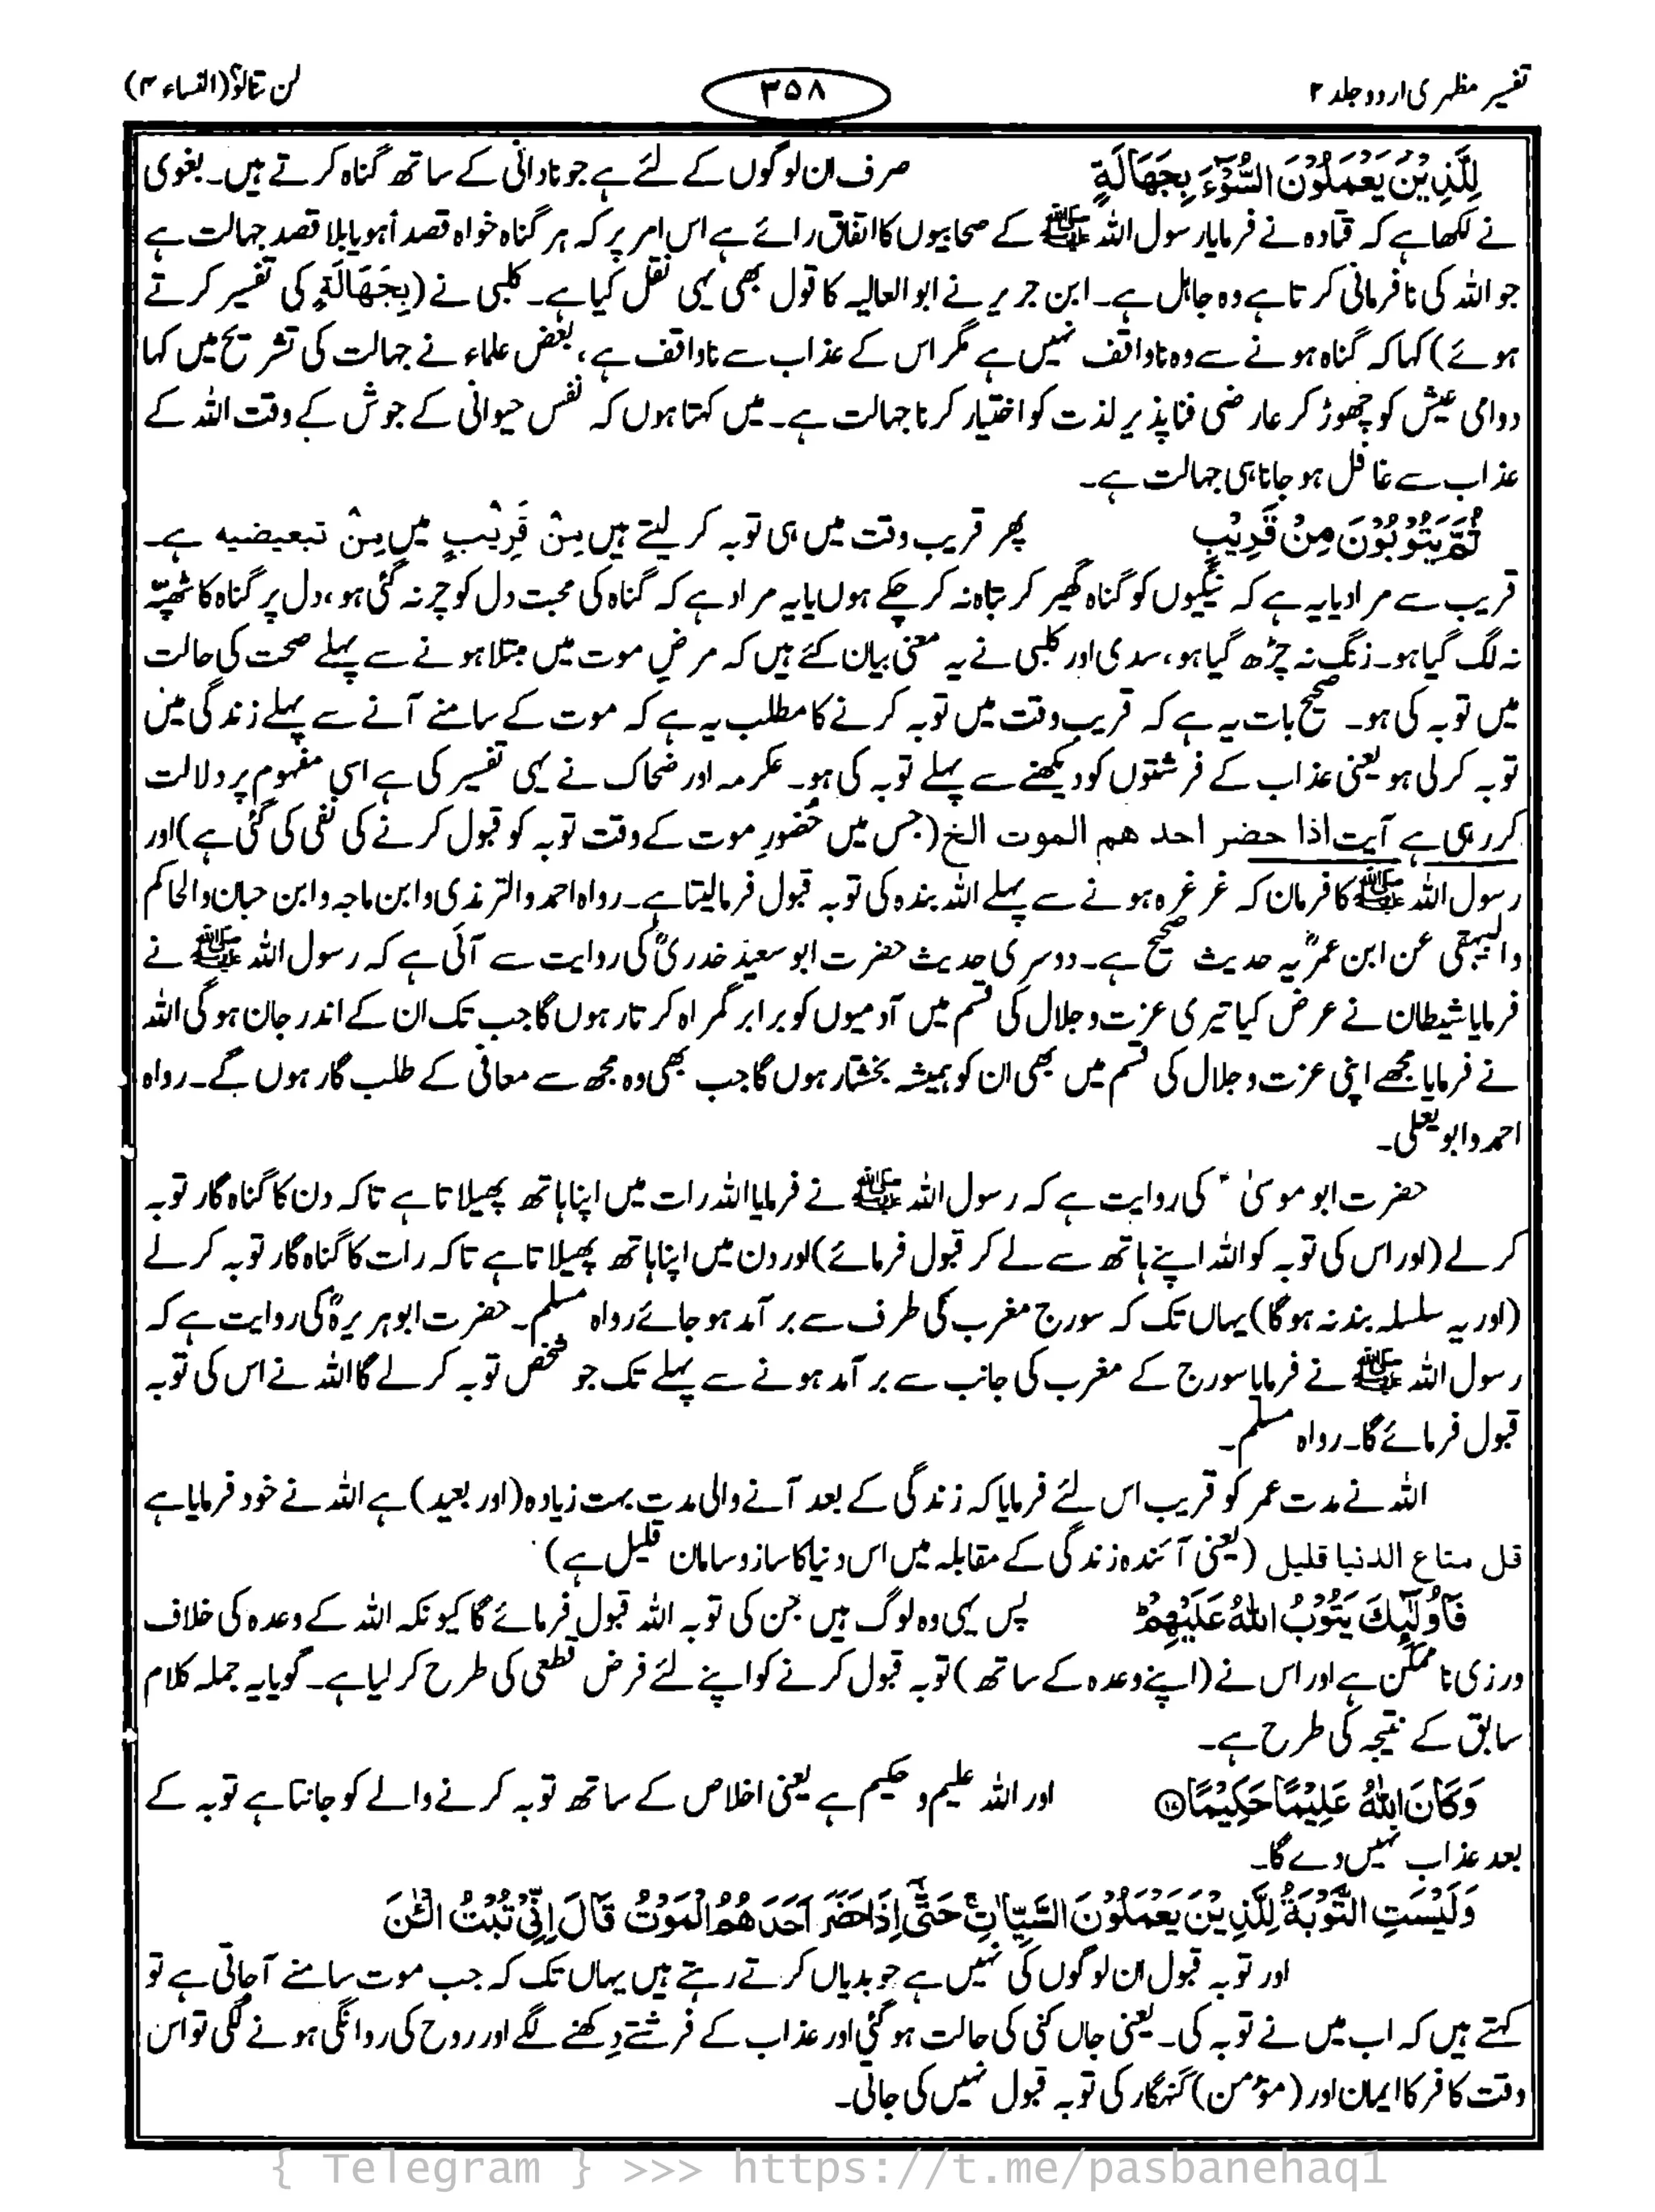 تفسیر مظہری اردو جلد ۲
۳۵۸
لن تنالوٗا (النساء ۴)
لِلَّذِيْنَ يَعْمَلُوْنَ السُّوْٓءَ بِجَهَالَةٍ صرف ان لوگوں کے لئے ہے جو نادانی کے ساتھ گناہ کرتے ہیں۔ بغوی
نے لکھا ہے کہ قتادہ نے فرمایا رسول اللہ ﷺ کے صحابیوں کا اتفاق رائے ہے اس امر پر کہ ہر گناہ خواہ قصداً ہو یا بلا قصد جہالت ہے
جو اللہ کی نافرمانی کرتا ہے وہ جاہل ہے۔ ابن جریر نے ابوالعالیہ کا قول بھی یہی نقل کیا ہے۔ کلبی نے (بِجَهَالَةٍ کی تفسیر کرتے
ہوئے) کہا کہ گناہ ہونے سے وہ ناواقف نہیں ہے مگر اس کے عذاب سے ناواقف ہے، بعض علماء نے جہالت کی تشریح میں کہا
دوامی عیش کو چھوڑ کر عارضی فنا پذیر لذت کو اختیار کرنا جہالت ہے۔ میں کہتا ہوں کہ نفس حیوانی کے جوش کے وقت اللہ کے
عذاب سے غافل ہو جانا ہی جہالت ہے۔
ثُمَّ يَتُوْبُوْنَ مِنْ قَرِيْبٍ پھر قریب وقت میں ہی توبہ کر لیتے ہیں مِنْ قَرِيْبٍ میں مِنْ تبعیضیہ ہے۔
قریب سے مراد یا یہ ہے کہ نیکیوں کو گناہ گھیر کر تباہ نہ کر چکے ہوں یا یہ مراد ہے کہ گناہ کی محبت دل کو چر نہ گئی ہو، دل پر گناہ کا ٹھپّہ
نہ لگ گیا ہو۔ زنگ نہ چڑھ گیا ہو، سدی اور کلبی نے یہ معنی بیان کئے ہیں کہ مرضِ موت میں مبتلا ہونے سے پہلے صحت کی حالت
میں توبہ کی ہو۔ صحیح بات یہ ہے کہ قریب وقت میں توبہ کرنے کا مطلب یہ ہے کہ موت کے سامنے آنے سے پہلے زندگی میں
توبہ کر لی ہو یعنی عذاب کے فرشتوں کو دیکھنے سے پہلے توبہ کی ہو۔ عکرمہ اور ضحاک نے یہی تفسیر کی ہے اسی مفہوم پر دلالت
کر رہی ہے آیت اذا حضر احد هم الموت الخ (جس میں حُضورِ موت کے وقت توبہ کو قبول کرنے کی نفی کی گئی ہے) اور
رسول اللہ ﷺ کا فرمان کہ غرغرہ ہونے سے پہلے اللہ بندہ کی توبہ قبول فرما لیتا ہے۔ رواہ احمد والترمذی وابن ماجہ وابن حبان والحاکم
والبیہقی عن ابن عمرؓ یہ حدیث صحیح ہے۔ دوسری حدیث حضرت ابو سعیدؓ خدریؓ کی روایت سے آئی ہے کہ رسول اللہ ﷺ نے
فرمایا شیطان نے عرض کیا تیری عزت و جلال کی قسم میں آدمیوں کو برابر گمراہ کرتا رہوں گا جب تک ان کے اندر جان ہو گی اللہ
نے فرمایا مجھے اپنی عزت و جلال کی قسم میں بھی ان کو ہمیشہ بخشتا رہوں گا جب بھی وہ مجھ سے معافی کے طلب گار ہوں گے۔ رواہ
احمد وابو یعلی۔
حضرت ابو موسیٰؓ کی روایت ہے کہ رسول اللہ ﷺ نے فرمایا اللہ رات میں اپنا ہاتھ پھیلاتا ہے تاکہ دن کا گناہ گار توبہ
کرلے (اور اس کی توبہ کو اللہ اپنے ہاتھ سے لے کر قبول فرمائے) اور دن میں اپنا ہاتھ پھیلاتا ہے تاکہ رات کا گناہ گار توبہ کر لے
(اور یہ سلسلہ بند نہ ہوگا) یہاں تک کہ سورج مغرب کی طرف سے برآمد ہو جائے رواہ مسلم۔ حضرت ابوہریرہؓ کی روایت ہے کہ
رسول اللہ ﷺ نے فرمایا سورج کے مغرب کی جانب سے برآمد ہونے سے پہلے تک جو شخص توبہ کرلے گا اللہ نے اس کی توبہ
قبول فرمائے گا۔ رواہ مسلم۔
اللہ نے مدت عمر کو قریب اس لئے فرمایا کہ زندگی کے بعد آنے والی مدت بہت زیادہ (اور بعید) ہے اللہ نے خود فرمایا ہے
قل متاع الدنیا قلیل (یعنی آئندہ زندگی کے مقابلہ میں اس دنیا کا سازو سامان قلیل ہے)
فَاُولٰٓىِٕكَ يَتُوْبُ اللّٰهُ عَلَيْهِمْ ؕ پس یہی وہ لوگ ہیں جن کی توبہ اللہ قبول فرمائے گا کیونکہ اللہ کے وعدہ کی خلاف
ورزی ناممکن ہے اور اس نے (اپنے وعدہ کے ساتھ) توبہ قبول کرنے کو اپنے لئے فرض قطعی کی طرح کر لیا ہے۔ گویا یہ جملہ کلام
سابق کے نتیجہ کی طرح ہے۔
وَكَانَ اللّٰهُ عَلِيْمًا حَكِيْمًا ⑰ اور اللہ علیم و حکیم ہے یعنی اخلاص کے ساتھ توبہ کرنے والے کو جانتا ہے توبہ کے
بعد عذاب نہیں دے گا۔
وَلَيْسَتِ التَّوْبَةُ لِلَّذِيْنَ يَعْمَلُوْنَ السَّيِّاٰتِ ۚ حَتّٰٓى اِذَا حَضَرَ اَحَدَهُمُ الْمَوْتُ قَالَ اِنِّىْ تُبْتُ الْـٰٔنَ
اور توبہ قبول ان لوگوں کی نہیں ہے جو بدیاں کرتے رہتے ہیں یہاں تک کہ جب موت سامنے آجاتی ہے تو
کہتے ہیں کہ اب میں نے توبہ کی۔ یعنی جاں کنی کی حالت ہو گئی اور عذاب کے فرشتے دِکھنے لگے اور روح کی روانگی ہونے لگی تو اس
وقت کافر کا ایمان اور (مؤمن) گنہگار کی توبہ قبول نہیں کی جاتی۔
{ Telegram } >>> https://t.me/pasbanehaq1